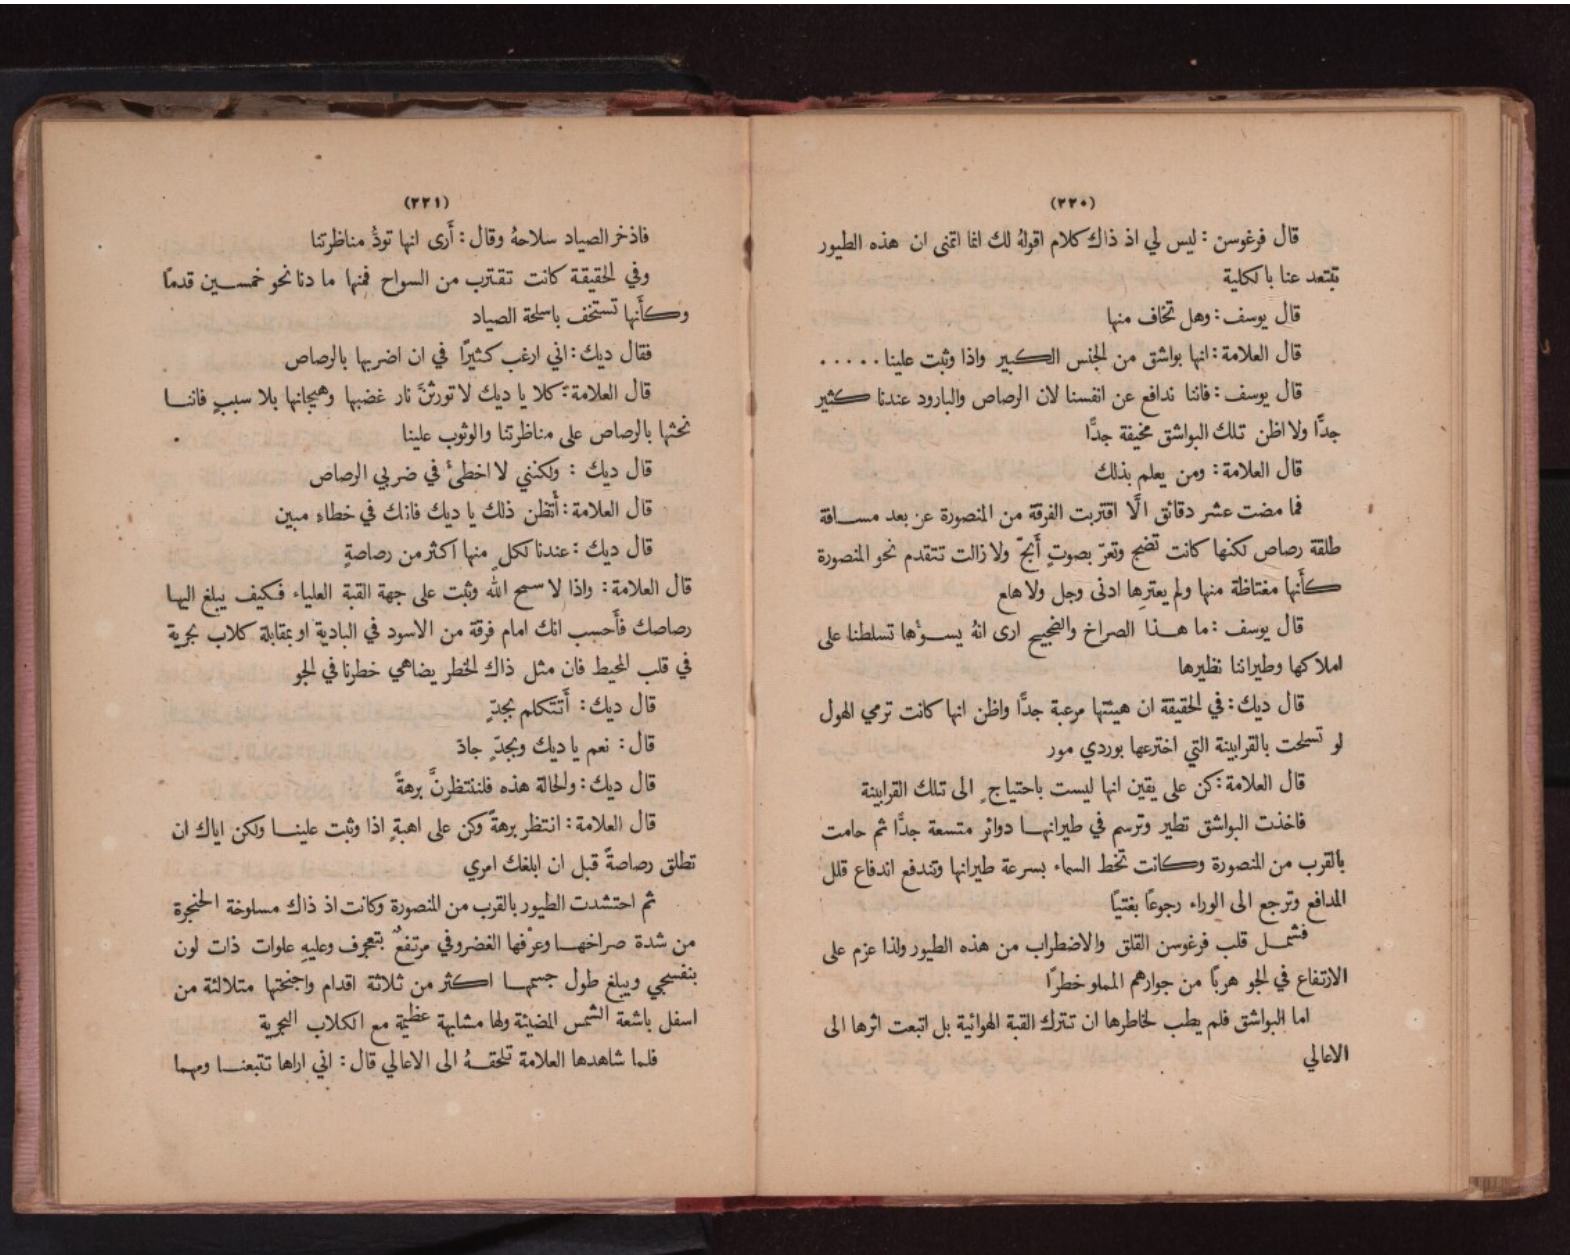 (٢٢٠)
قال فرغوسن : ليس لي اذ ذاك كلام اقولهُ لك انما اتمنى ان هذه الطيور
تبتعد عنا بالكلية
قال يوسف : وهل تخاف منها
قال العلامة : انها بواشق من الجنس الكبير واذا وثبت علينا . . . . .
قال يوسف : فاننا ندافع عن انفسنا لان الرصاص والبارود عندنا كثير
جدًّا ولا اظن تلك البواشق مخيفة جدًّا
قال العلامة : ومن يعلم بذلك
فما مضت عشر دقائق الَّا اقتربت الفرقة من المنصورة عن بعد مسافة
طلقة رصاص لكنها كانت تضج وتعرّ بصوتٍ أَبحّ ولا زالت تتقدم نحو المنصورة
كأَنها مغتاظة منها ولم يعترها ادنى وجل ولا هلع
قال يوسف : ما هذا الصراخ والضجيج ارى انهُ يسوْها تسلطنا على
املاكها وطيراننا نظيرها
قال ديك : في الحقيقة ان هيئتها مرعبة جدًّا واظن انها كانت ترمي الهول
لو تسلحت بالقرابينة التي اخترعها بوردي مور
قال العلامة : كن على يقين انها ليست باحتياجٍ الى تلك القرابينة
فاخذت البواشق تطير وترسم في طيرانها دوائر متسعة جدًّا ثم حامت
بالقرب من المنصورة وكانت تخط السماء بسرعة طيرانها وتندفع اندفاع قلل
المدافع وترجع الى الوراء رجوعًا بغتيًا
فشمل قلب فرغوسن القلق والاضطراب من هذه الطيور ولذا عزم على
الارتفاع في الجو هربًا من جوارهم المملو خطرًا
اما البواشق فلم يطب لخاطرها ان تترك القبة الهوائية بل اتبعت اثرها الى
الاعالي
(٢٢١)
فاذخر الصياد سلاحهُ وقال : أَرى انها تودُّ مناظرتنا
وفي الحقيقة كانت تقترب من السواح فمنها ما دنا نحو خمسين قدمًا
وكأَنها تستخف باسلحة الصياد
فقال ديك : اني ارغب كثيرًا في ان اضربها بالرصاص
قال العلامة : كلا يا ديك لا تورثنَّ نار غضبها وهيجانها بلا سببٍ فاننا
نحثها بالرصاص على مناظرتنا والوثوب علينا
قال ديك : ولكنني لا اخطئ في ضربي الرصاص
قال العلامة : أَتظن ذلك يا ديك فانك في خطاءٍ مبين
قال ديك : عندنا لكلٍ منها اكثر من رصاصةٍ
قال العلامة : واذا لا سمح الله وثبت على جهة القبة العلياء فكيف يبلغ اليها
رصاصك فأَحسب انك امام فرقة من الاسود في البادية او بمقابلة كلاب بحرية
في قلب المحيط فان مثل ذاك الخطر يضاهي خطرنا في الجو
قال ديك : أَتتكلم بجدٍّ
قال : نعم يا ديك وبجدٍّ جادّ
قال ديك : والحالة هذه فلننتظرنَّ برهةً
قال العلامة : انتظر برهةً وكن على اهبةٍ اذا وثبت علينا ولكن اياك ان
تطلق رصاصةً قبل ان ابلغك امري
ثم احتشدت الطيور بالقرب من المنصورة وكانت اذ ذاك مسلوخة الحنجرة
من شدة صراخها وعرْفها الغضروفي مرتفعٌ بتعجرف وعليهِ علوات ذات لون
بنفسجي ويبلغ طول جسمها اكثر من ثلاثة اقدام واجنحتها متلالئة من
اسفل باشعة الشمس المضيئة ولها مشابهة عظيمة مع الكلاب البحرية
فلما شاهدها العلامة تلحقهُ الى الاعالي قال : اني اراها تتبعنا ومهما